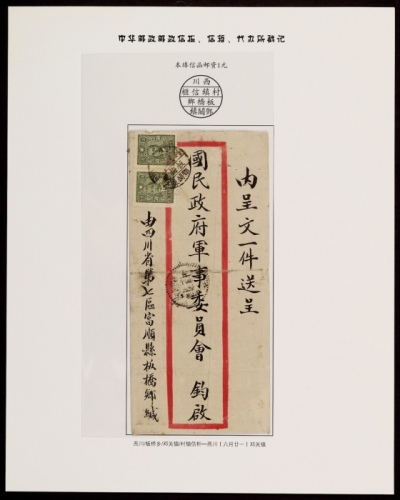 中华邮政邮政信柜、信箱、代办所戳记
本埠信函邮资1元
西川
村鎮信櫃
板橋鄉
鄧關鎮
內呈文一件送呈
國民政府軍事委員會 鈞啟
由四川省第七區富順縣板橋鄉緘